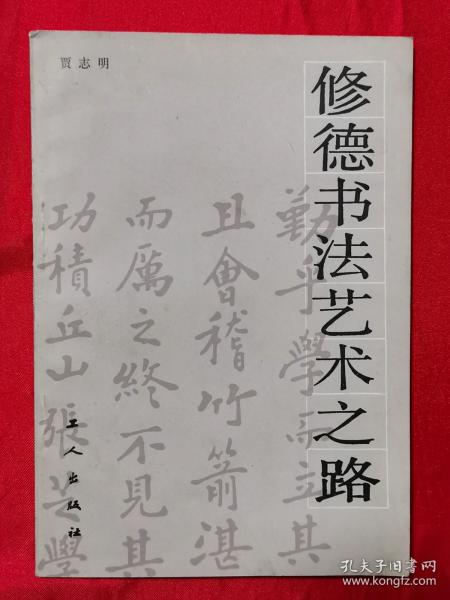 贾志明
修德书法艺术之路
勤乎学而立其
且会稽竹箭湛
而厲之终不見其
功積丘山張芝學
工人出版社
孔夫子旧书网
www.kongfz.com